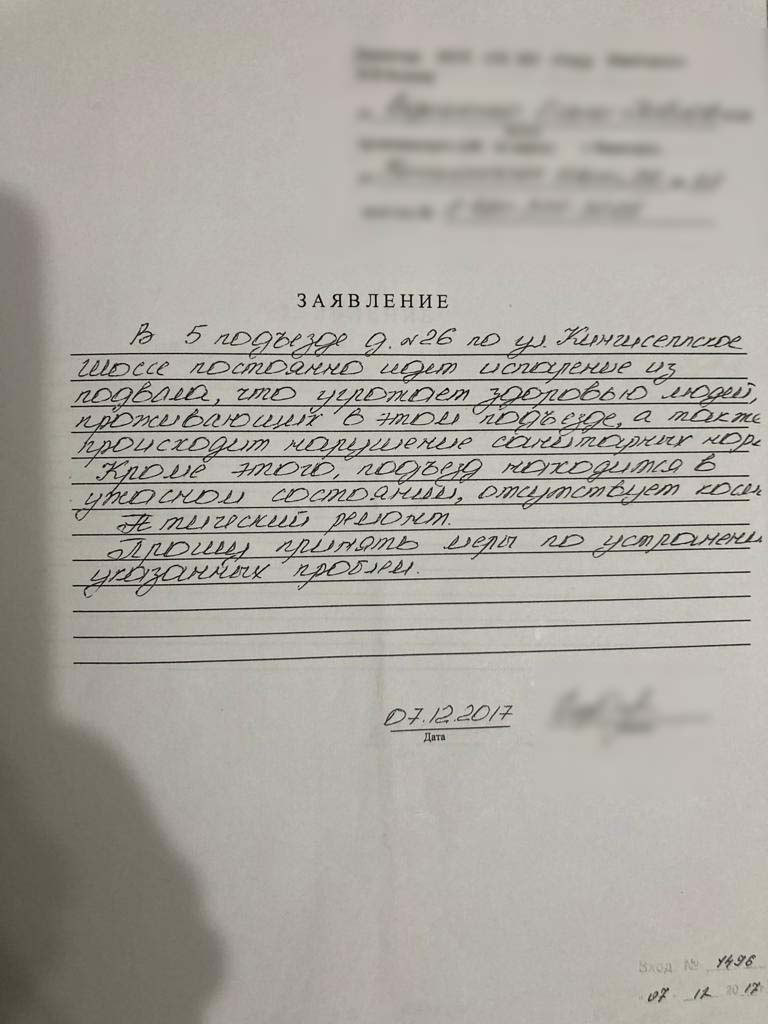 ЗАЯВЛЕНИЕ
В 5 подъезде д. №26 по ул. Кингисеппское
шоссе постоянно идет испарение из
подвала, что угрожает здоровью людей,
проживающих в этом подъезде, а также
происходит нарушение санитарных норм
Кроме этого, подъезд находится в
ужасном состоянии, отсутствует косме
тический ремонт.
Прошу принять меры по устранени
указанных проблем.
07.12.2017
Дата
Вход № 1496
07 12 2017